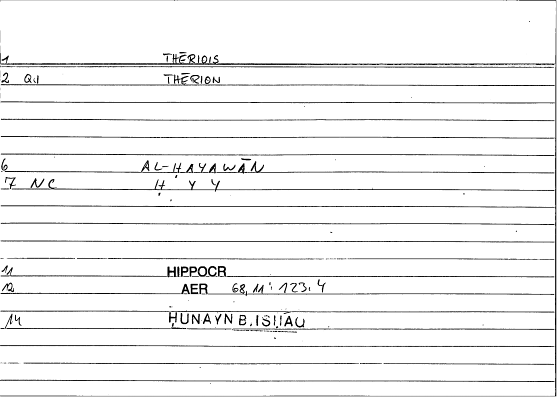 1 THĒRIOIS
2 Qd THĒRION
6 AL-ḤAYAWĀN
7 NC Ḥ Y Y
11 HIPPOCR
12 AER 68,11 : 123.4
14 ḤUNAYN B. ISḤĀQ